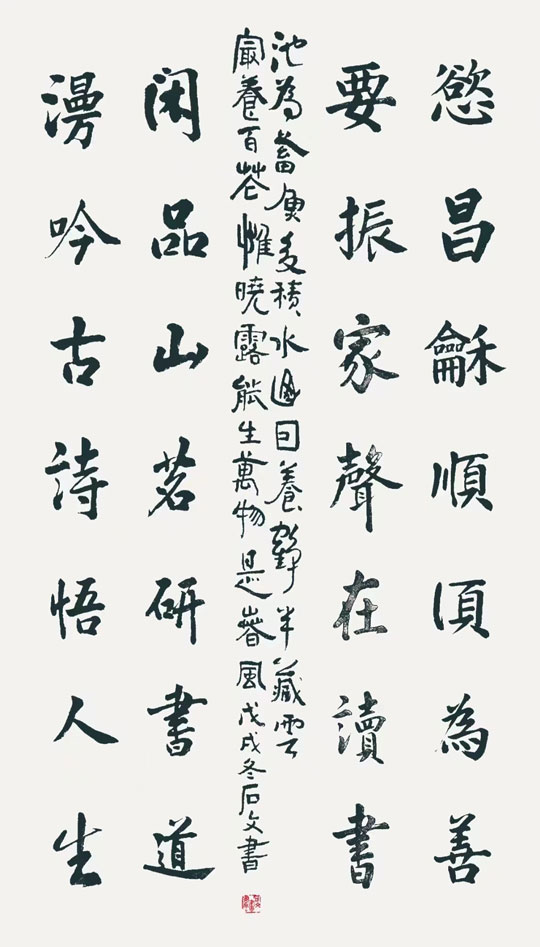 慾昌龢順須為善
要振家聲在讀書
池為畜魚多積水囙養鶴半藏雲
冣養百花惟曉露能生萬物是春風戊戌冬石文書
闲品山茗研書道
漫吟古詩悟人生